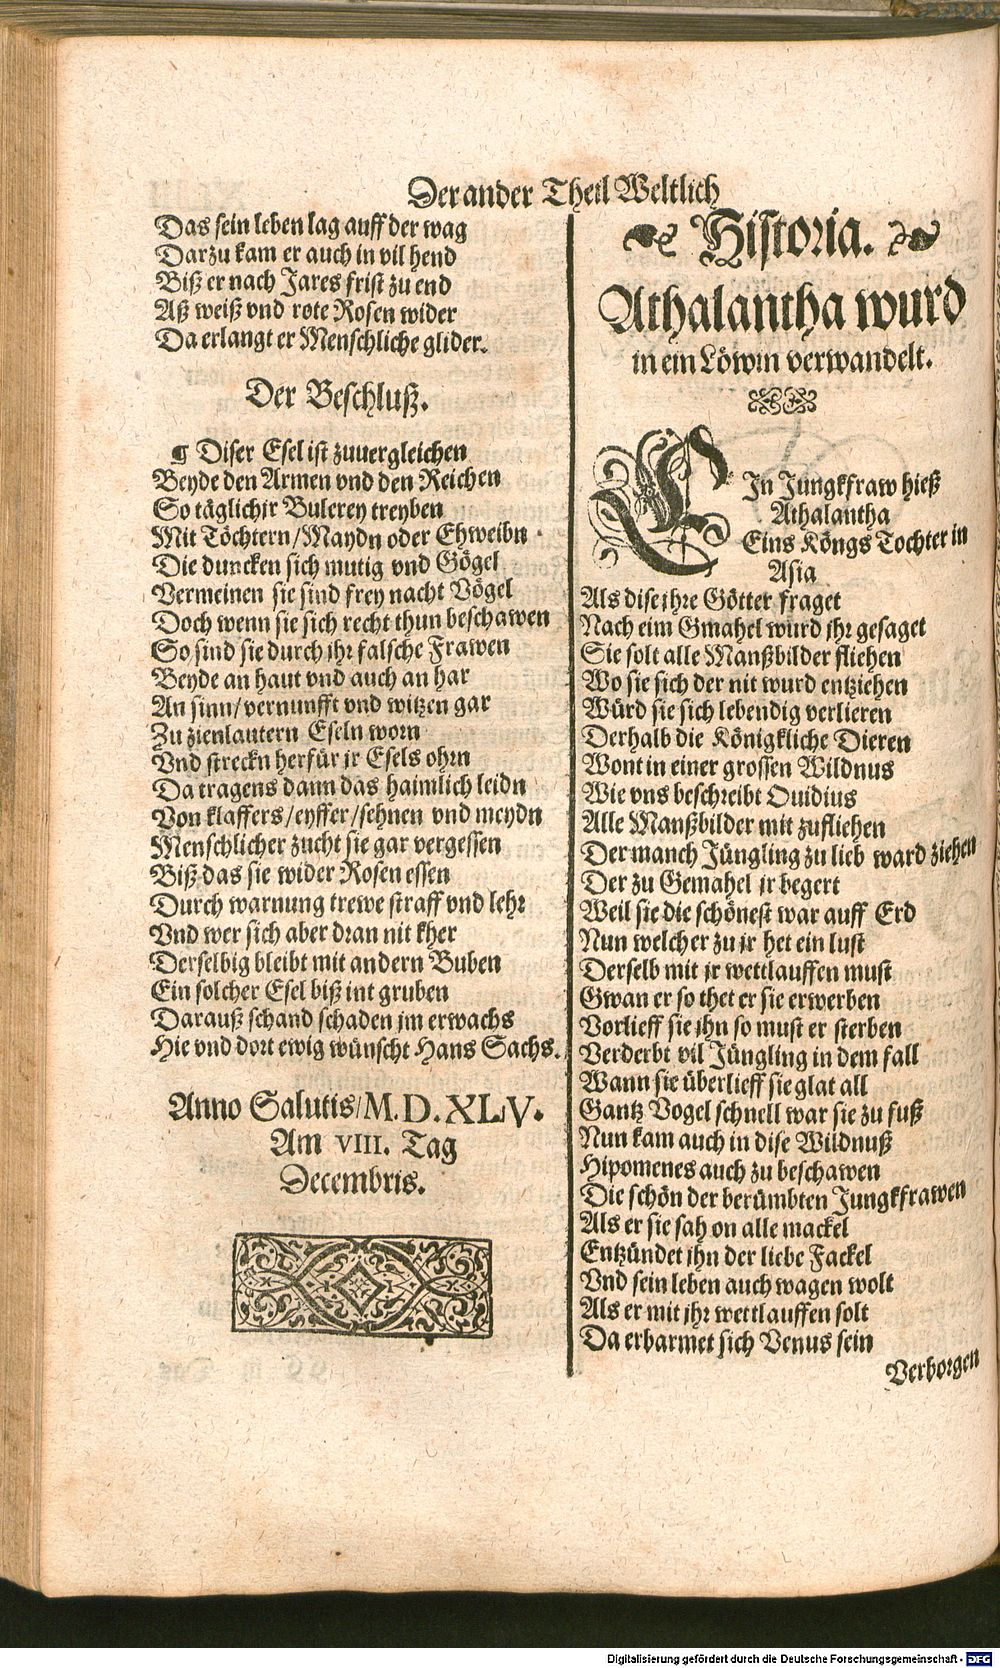 Der ander Theil Weltlich
Das sein leben lag auff der wag
Darzu kam er auch in vil hend
Biß er nach Jares frist zu end
Aß weiß vnd rote Rosen wider
Da erlangt er Menschliche glider.
Der Beschluß.
¶ Diser Esel ist zuuergleichen
Beyde den Armen vnd den Reichen
So täglichir Bulerey treyben
Mit Töchtern/Maydn oder Ehweibn
Die duncken sich mutig vnd Gögel
Vermeinen sie sind frey nacht Vögel
Doch wenn sie sich recht thun beschawen
So sind sie durch jhr falsche Frawen
Beyde an haut vnd auch an har
An sinn/vernunfft vnd witzen gar
Zu zienlautern Eseln worn
Vnd streckn herfür jr Esels ohrn
Da tragens dann das haimlich leidn
Von klaffers/eyffer/sehnen vnd meydn
Menschlicher zucht sie gar vergessen
Biß das sie wider Rosen essen
Durch warnung trewe straff vnd lehr
Vnd wer sich aber dran nit kher
Derselbig bleibt mit andern Buben
Ein solcher Esel biß int gruben
Darauß schand schaden jm erwachs
Hie vnd dort ewig wünscht Hans Sachs.
Anno Salutis/M.D.XLV.
Am VIII. Tag
Decembris.
Historia.
Athalantha wurd
in ein Löwin verwandelt.
EIn Jungkfraw hieß
Athalantha
Eins Köngs Tochter in
Asia
Als dise jhre Götter fraget
Nach eim Gmahel wurd jhr gesaget
Sie solt alle Manßbilder fliehen
Wo sie sich der nit wurd entziehen
Würd sie sich lebendig verlieren
Derhalb die Königkliche Dieren
Wont in einer grossen Wildnus
Wie vns beschreibt Ouidius
Alle Manßbilder mit zufliehen
Der manch Jüngling zu lieb ward ziehen
Der zu Gemahel jr begert
Weil sie die schönest war auff Erd
Nun welcher zu jr het ein lust
Derselb mit jr wettlauffen must
Gwan er so thet er sie erwerben
Vorlieff sie jhn so must er sterben
Verderbt vil Jüngling in dem fall
Wann sie überlieff sie glat all
Gantz Vogel schnell war sie zu fuß
Nun kam auch in dise Wildnuß
Hipomenes auch zu beschawen
Die schön der berümbten Jungkfrawen
Als er sie sah on alle mackel
Entzündet jhn der liebe Fackel
Vnd sein leben auch wagen wolt
Als er mit jhr wettlauffen solt
Da erbarmet sich Venus sein
Verborgen
Digitalisierung gefördert durch die Deutsche Forschungsgemeinschaft - DFG